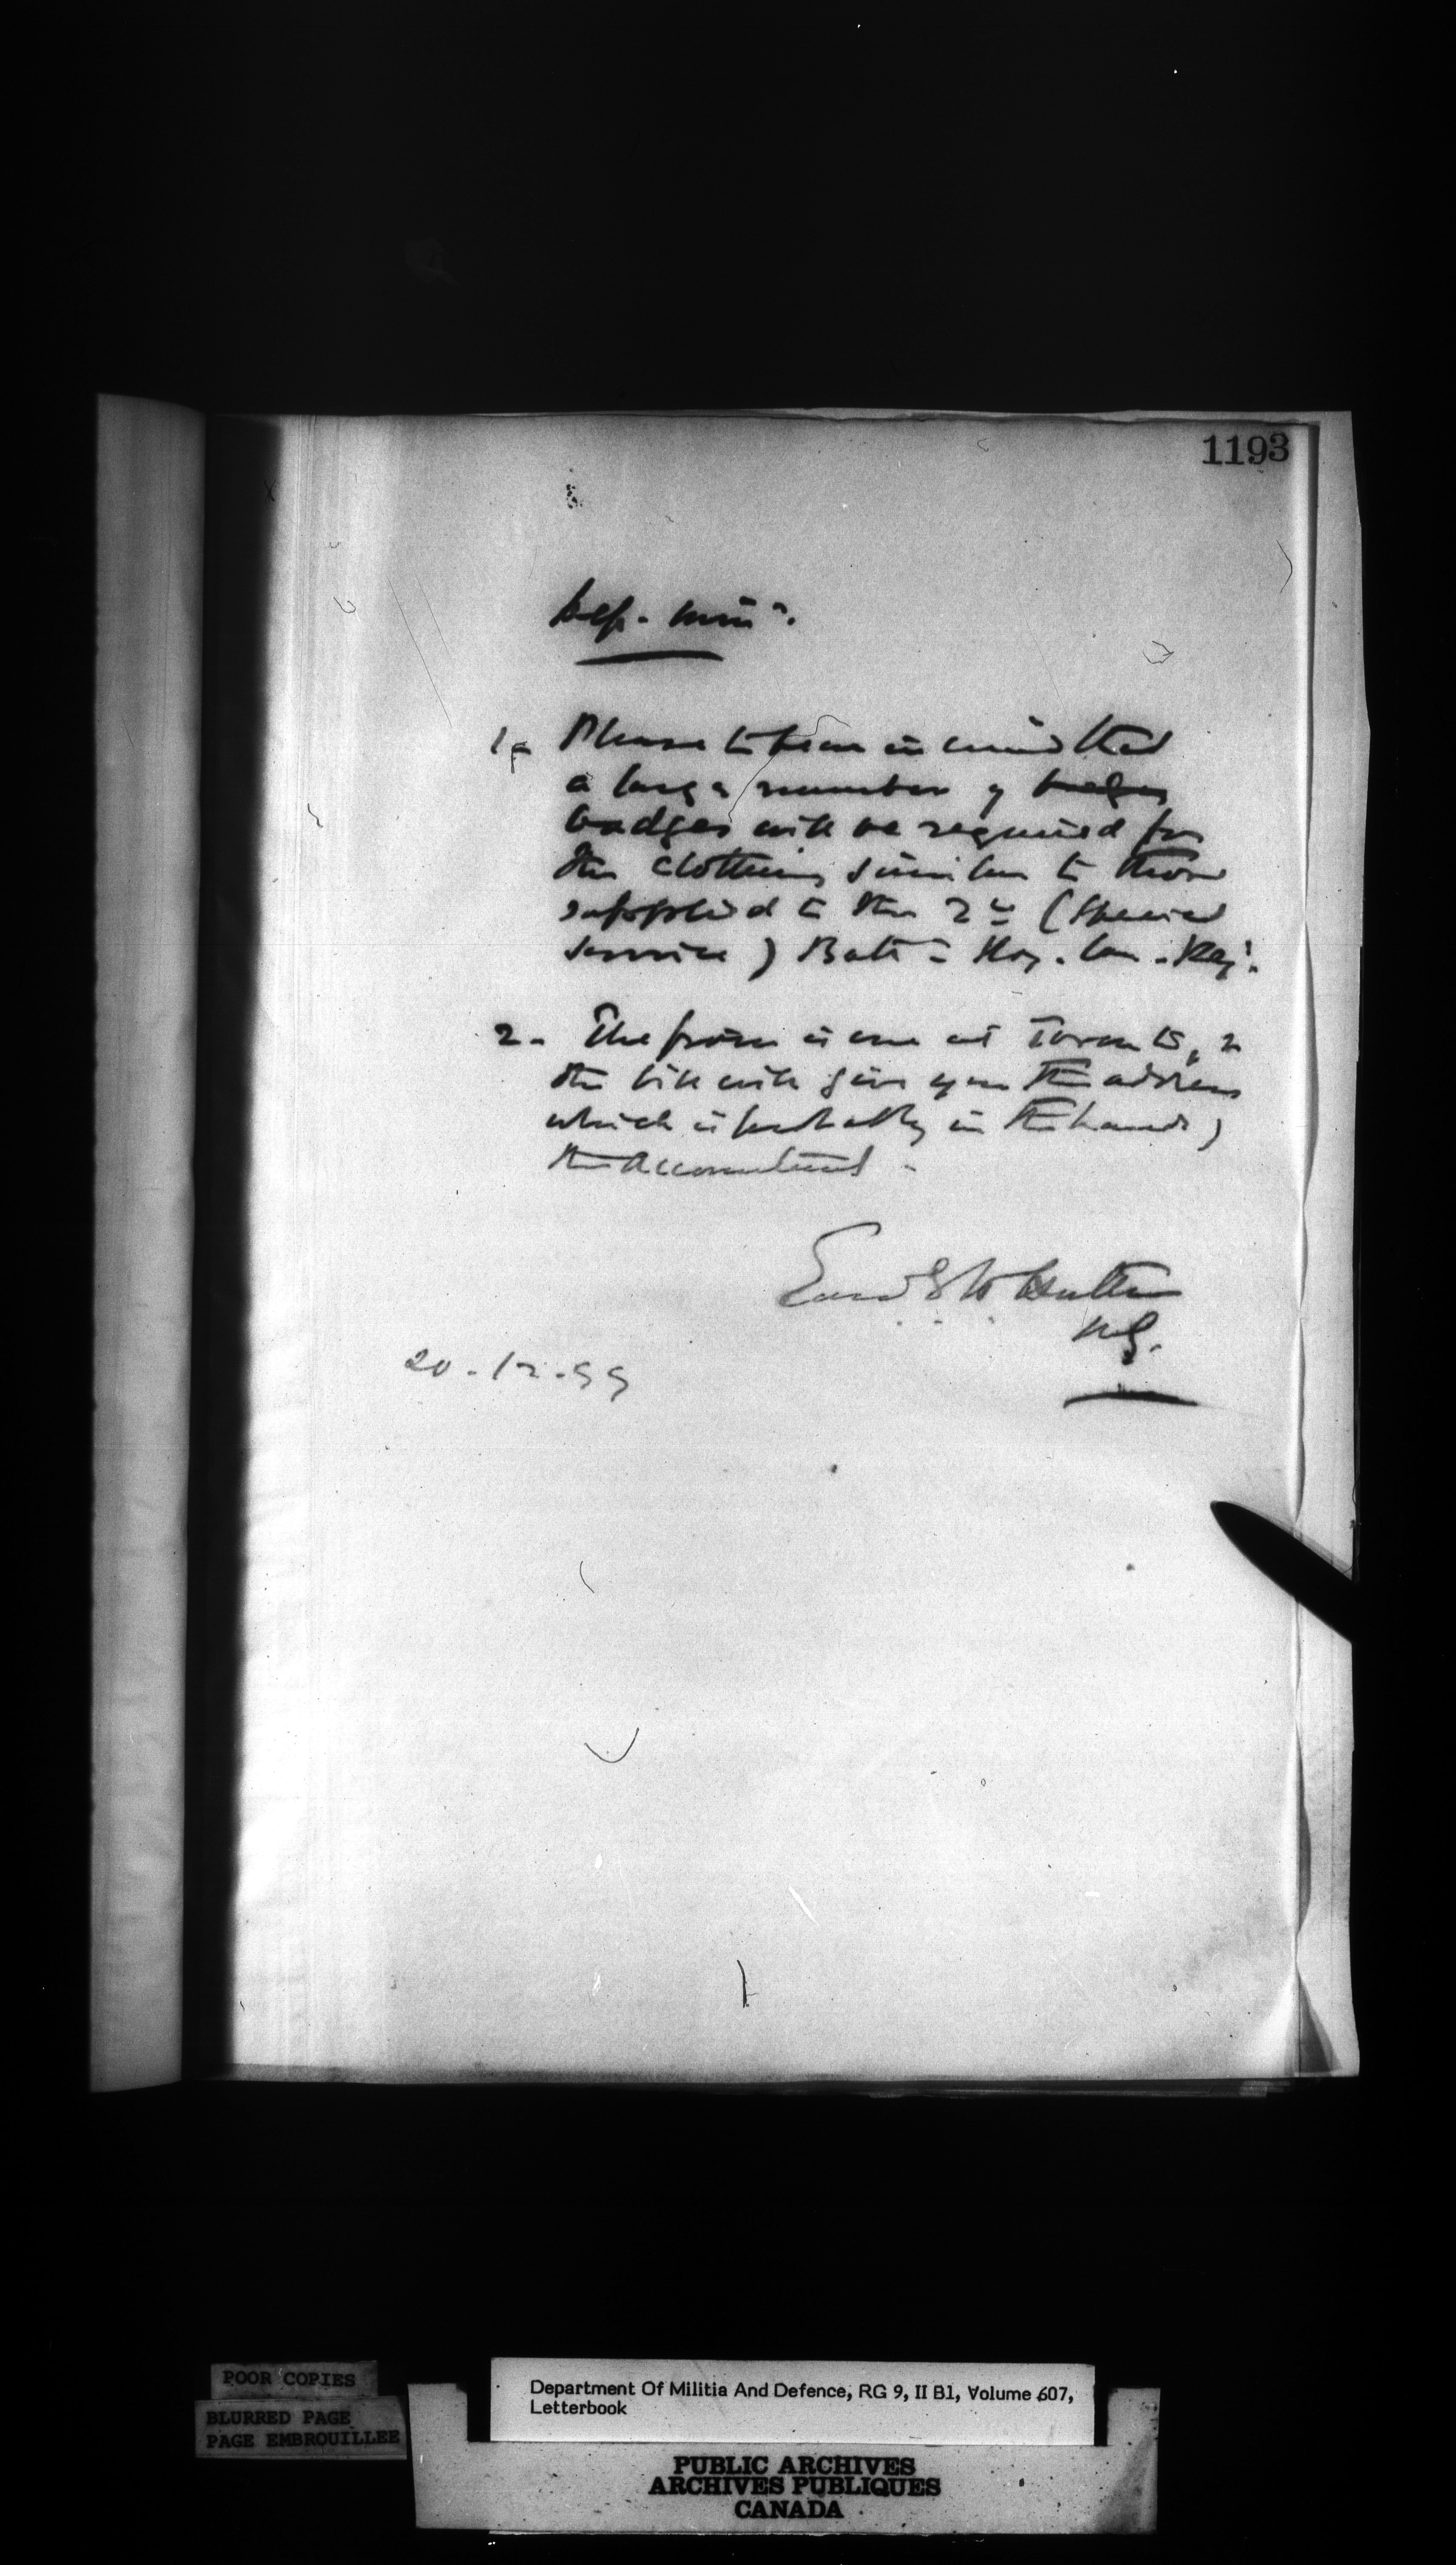 1193
Dep. Minr.
1. Please to bear in mind that
a large number of badges
badges will be required for
the clothing similar to those
supplied to the 2nd (Special
Service) Battn Roy. Can. Regt.
2. The firm is one at Toronto,
the bill will give you the address
which is probably in the hands of
the Accountant.
Edward T H Hutton
M.G.
20-12-99
POOR COPIES
BLURRED PAGE
PAGE EMBROUILLEE
Department Of Militia And Defence, RG 9, II B1, Volume 607,
Letterbook
PUBLIC ARCHIVES
ARCHIVES PUBLIQUES
CANADA